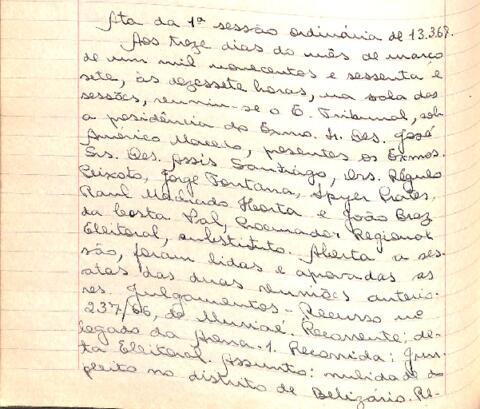 Ata da 1ª sessão ordinária de 13.3.67.
Aos treze dias do mês de março
de um mil novecentos e sessenta e
sete, às dezessete horas, na sala das
sessões, reuniu-se o E. Tribunal, sob
a presidência do Exmo. Sr. Des. José
Américo Macedo, presentes os Exmos.
Srs. Des. Assis Santiago, Drs. Régulo
Peixoto, Jorge Fontana, Ipyer Prates,
Raul Machado Horta e João Braz
da Costa Val, Procurador Regional
Eleitoral, substituto. Aberta a ses-
são, foram lidas e aprovadas as
atas das duas reuniões anterio-
res. Julgamentos - Recurso nº
237/66, de Muriaé. Recorrente: de-
legado da Arena-1. Recorrida: Jun-
ta Eleitoral. Assunto: nulidade do
pleito no distrito de Belizário. Re-